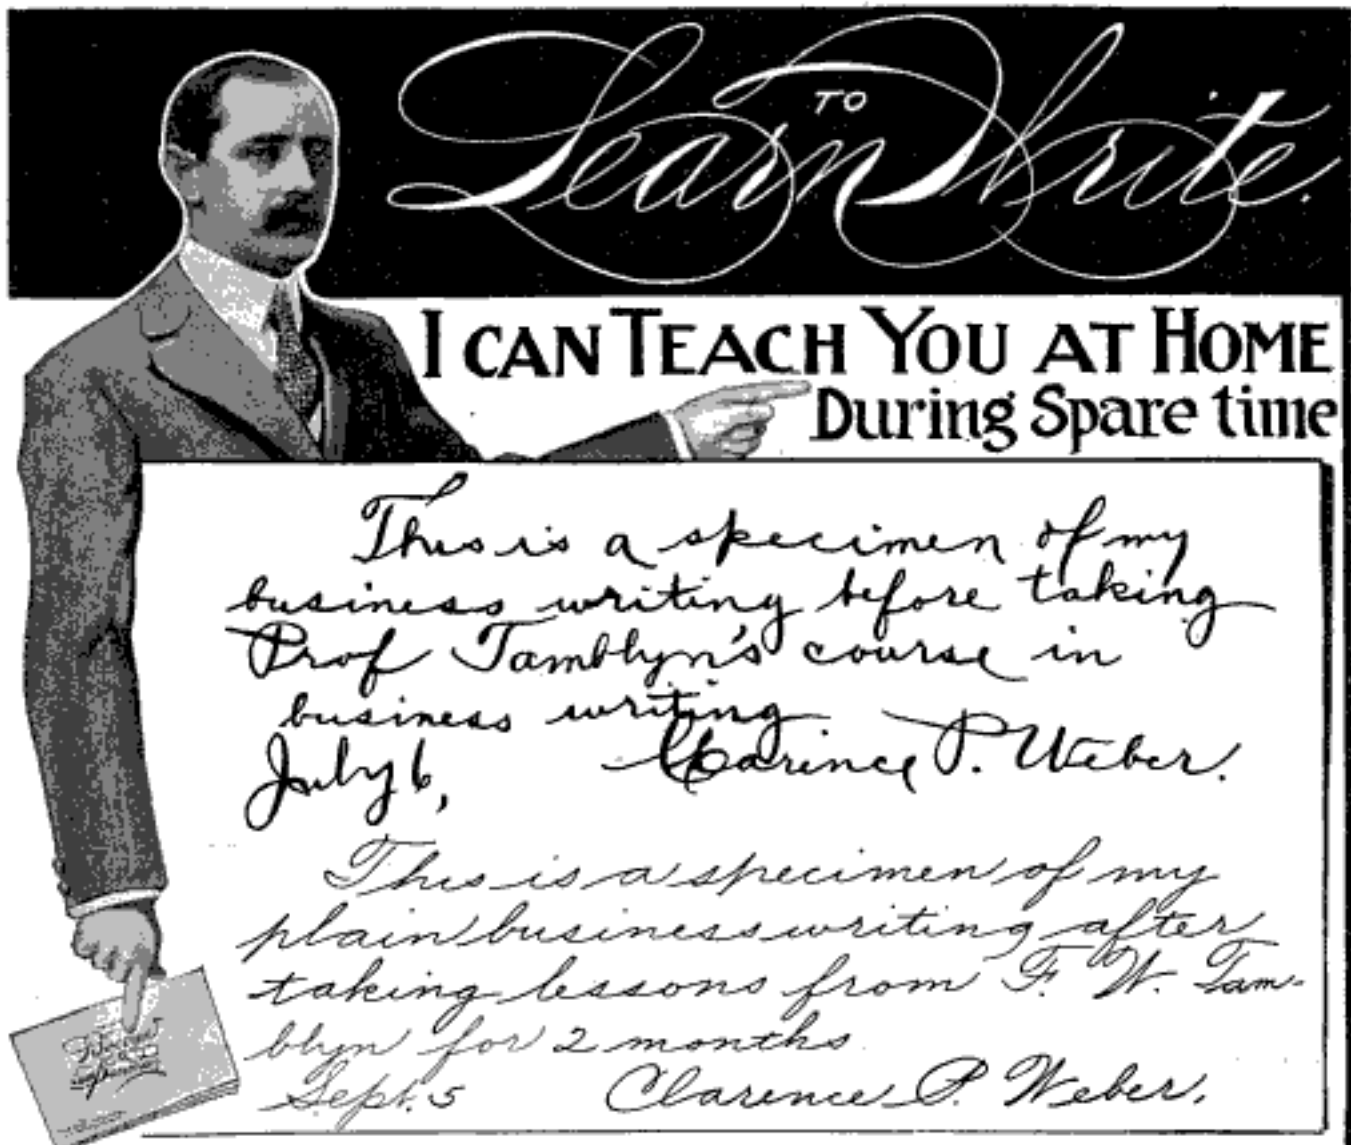 Learn to Write.
I CAN TEACH YOU AT HOME
During Spare time
This is a specimen of my
business writing before taking
Prof Tamblyn's course in
business writing
Clarence P. Weber.
July 6,
This is a specimen of my
plain business writing after
taking lessons from F. W. Tam-
blyn for 2 months
Sept. 5 Clarence P. Weber.